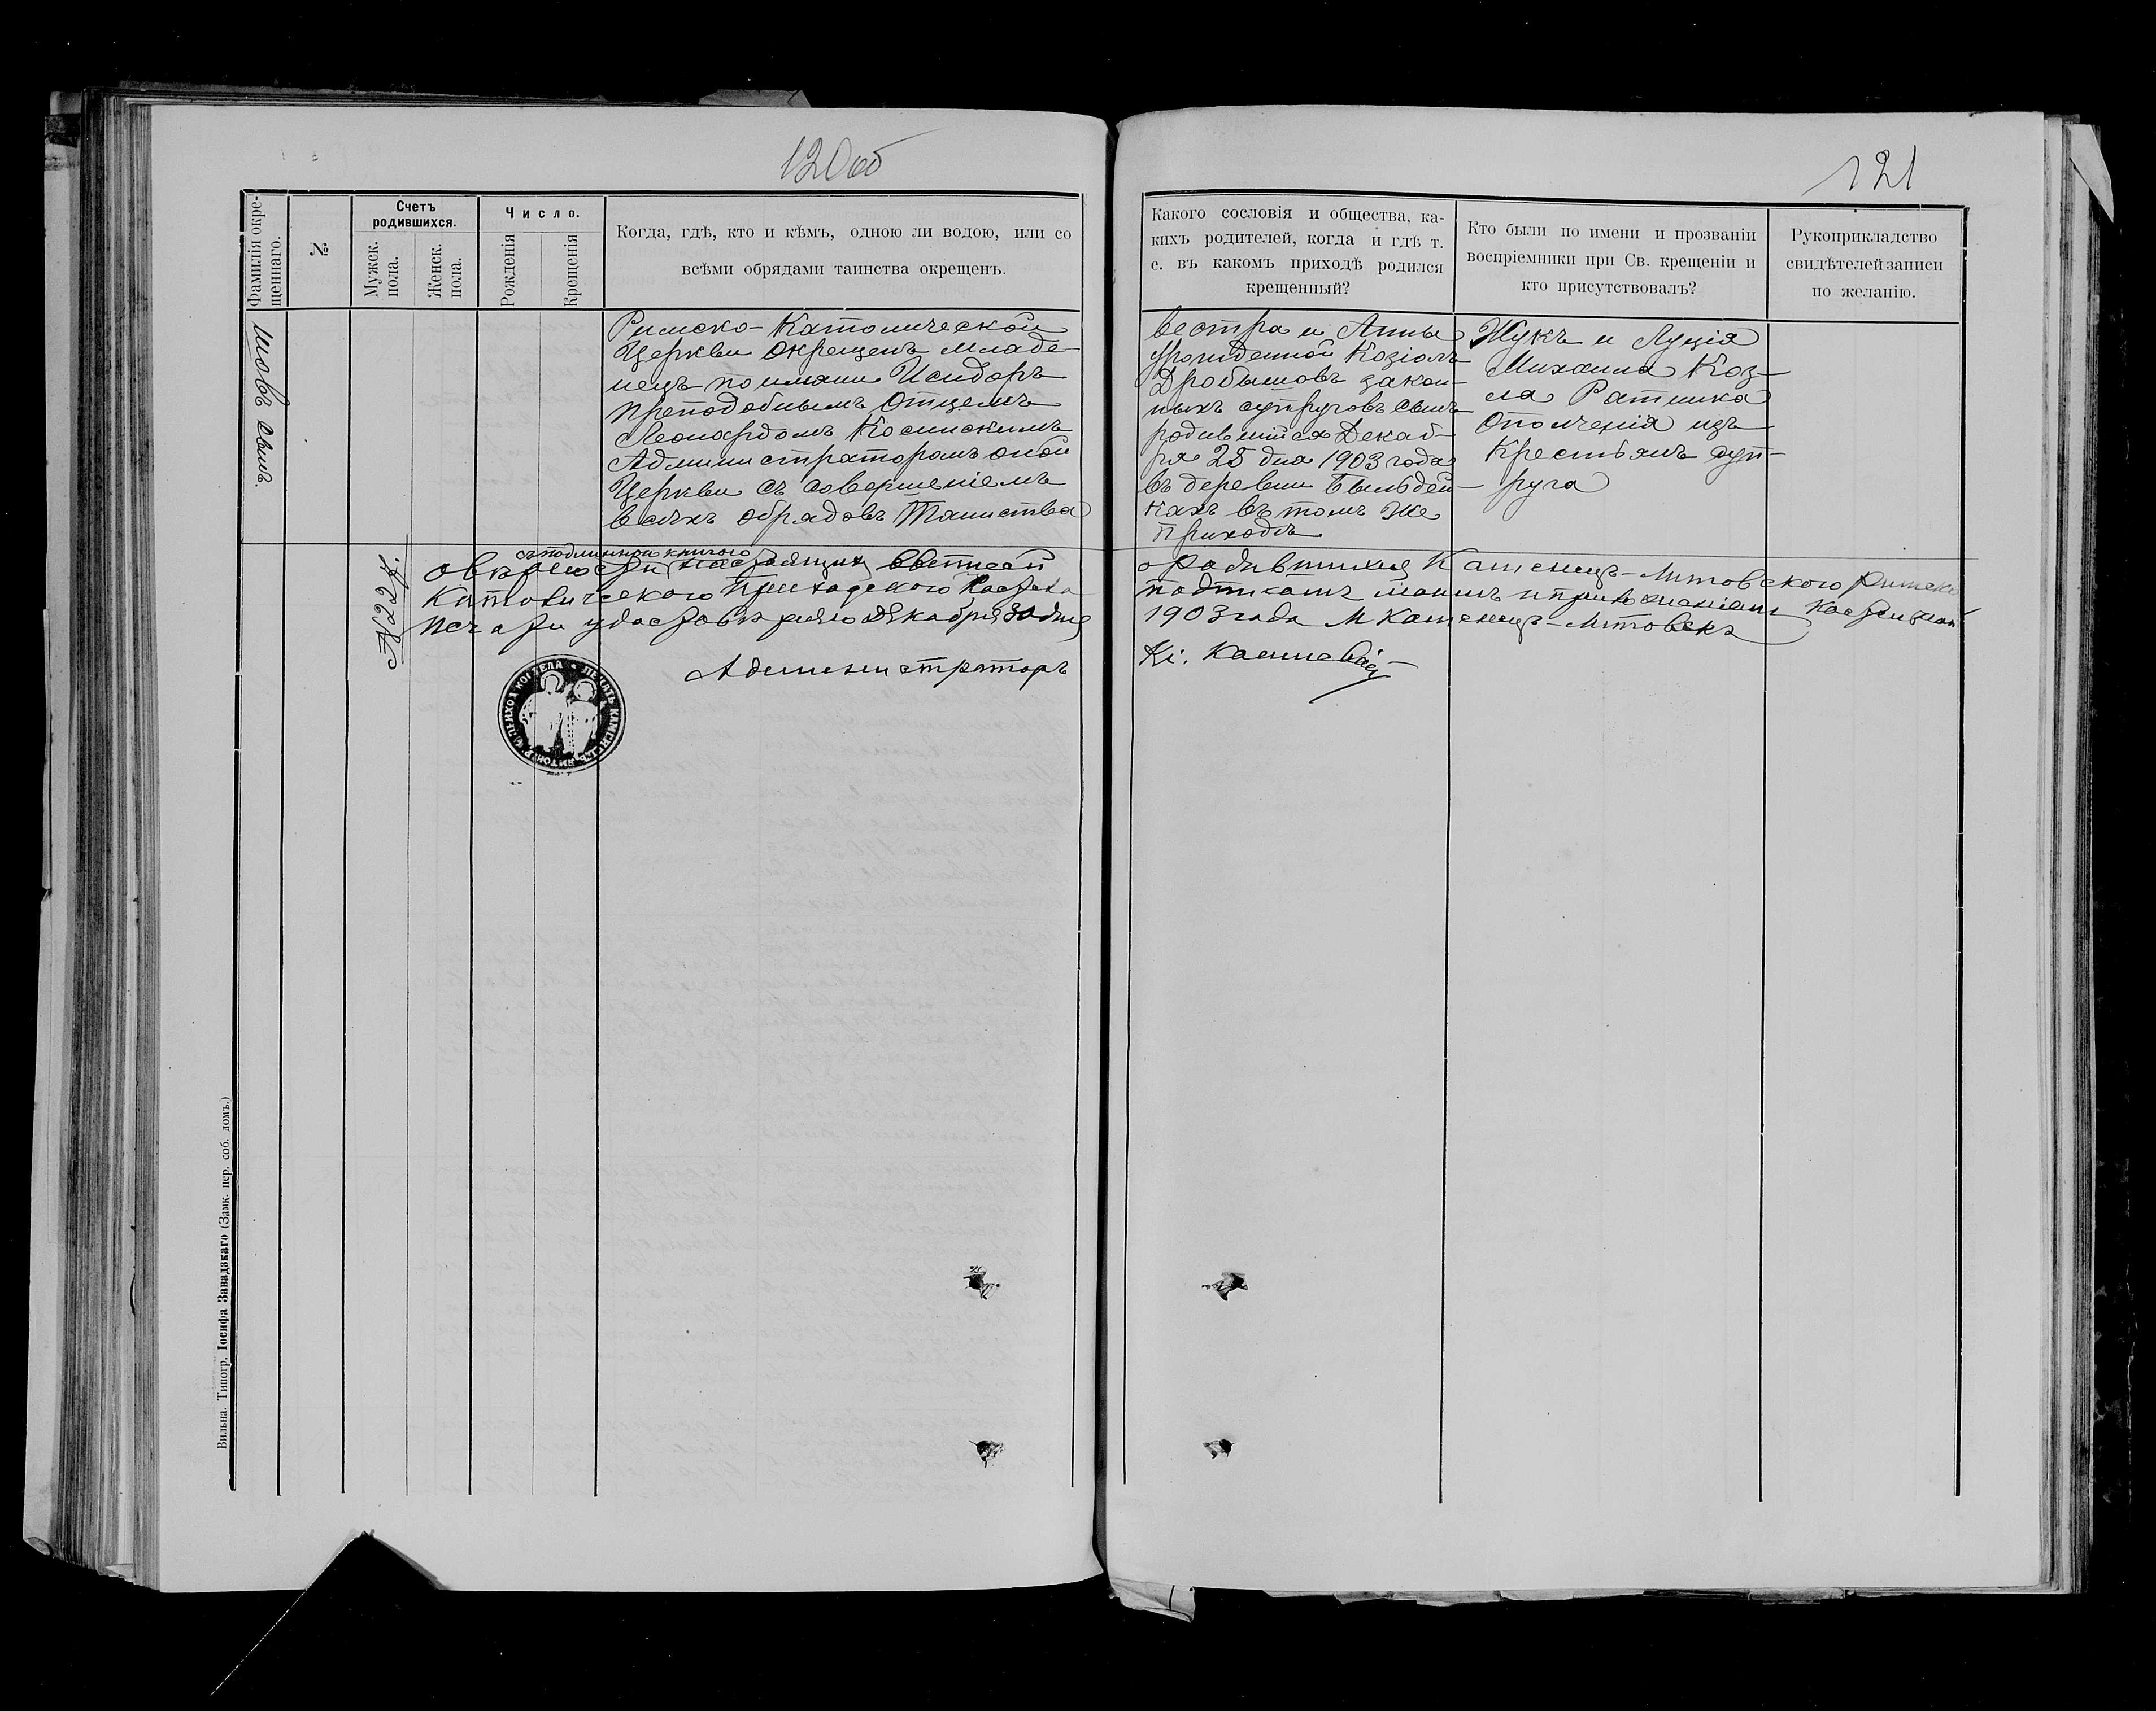 120об
121
Фамилія окре-
щеннаго.
№
Счетъ
родившихся.
Мужск.
пола.
Женск.
пола.
Число.
Рожденія
Крещенія
Когда, гдѣ, кто и кѣмъ, одною ли водою, или со
всѣми обрядами таинства окрещенъ.
Какого сословія и общества, ка-
кихъ родителей, когда и гдѣ т.
е. въ какомъ приходѣ родился
крещенный?
Кто были по имени и прозванію
воспріемники при Св. крещеніи и
кто присутствовалъ?
Рукоприкладство
свидѣтелей записи
по желанію.
шовъ сынъ.
Римско-Католической
Церкви окрещенъ младе-
нецъ по имени Исидоръ
преподобнымъ Отцемъ
Леонардомъ
Администраторомъ оной
Церкви съ совершеніемъ
всѣхъ обрядовъ Таинства
вестра и Анны
урожденной Козіолъ
Дробышовъ закон-
ныхъ супруговъ сынъ
родившійся Декаб-
ря 25 дня 1903 года
въ деревни Бильдей-
кахъ въ томъ же
приходѣ
Жукъ и Луція
Михаила Коз-
ла Ратника
Ополченія изъ
Крестьянъ суп-
руга
съ подлинною книгою
о родившихся Каменецъ-Литовского Римско
Католического Приходского Костела
подписомъ моимъ и приложеніемъ Костельной
Печати удостовѣряю Декабря 30 дня
1903 года М Каменецъ-Литовскъ
№ 227.
Администраторъ
Кс.
ПЕЧАТЬ КАМЕНЕЦЪ ЛИТОВ. Р. К. ПРИХОД. КОСТЕЛА
Вильна. Типогр. Іосифа Завадзкаго (Замк. пер. соб. домъ.)